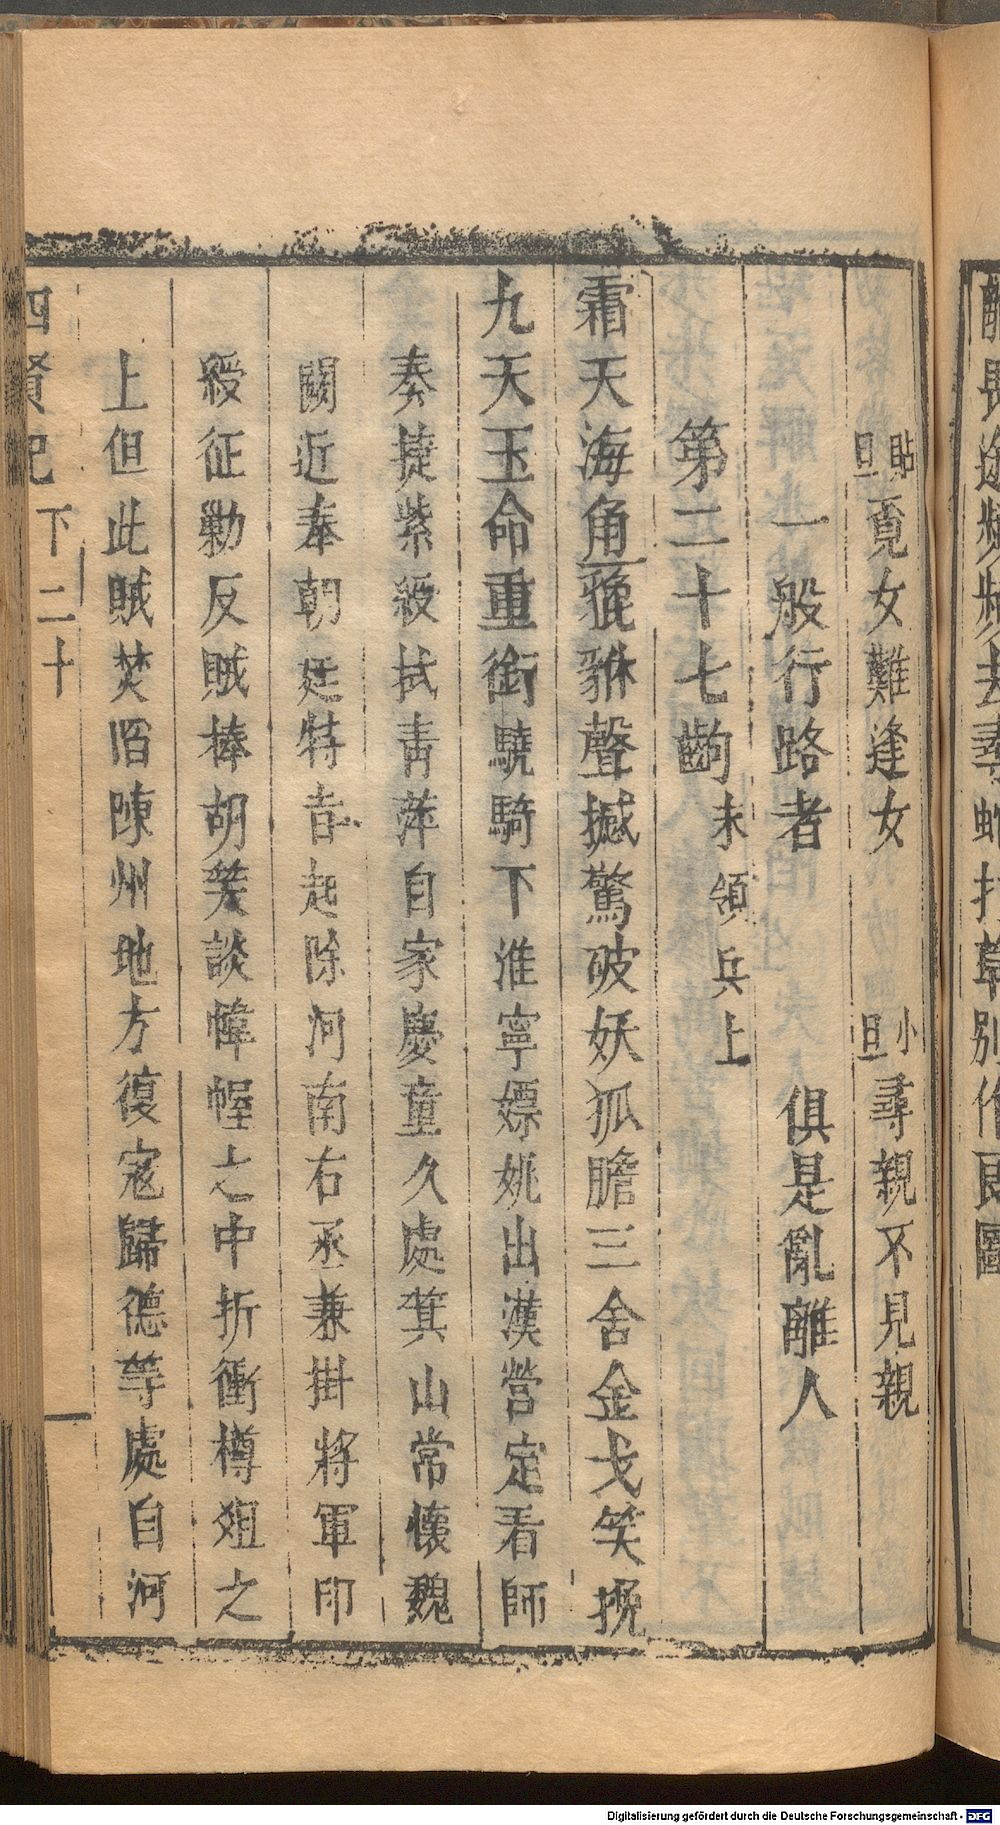 醋長途頻頻去尋蛇打草別作良圖
貼旦覔女難逢女　小旦尋親不見親
一般行路者　俱是亂離人
第二十七齣末領兵上
霜天海角貔貅聲撼驚破妖狐膽三舍金戈笑挽
九天玉命重銜驍騎下淮寧嫖姚出漢營定看師
奏捷紫綬拭青萍自家慶童久處箕山常懷魏
闕近奉朝廷特旨起除河南右丞兼掛將軍印
綬征勦反賊棒胡笑談幃幄之中折衝樽俎之
上但此賊焚陷陳州地方復寇歸德等處自河
四賢記 下 二十
Digitalisierung gefördert durch die Deutsche Forschungsgemeinschaft - DFG